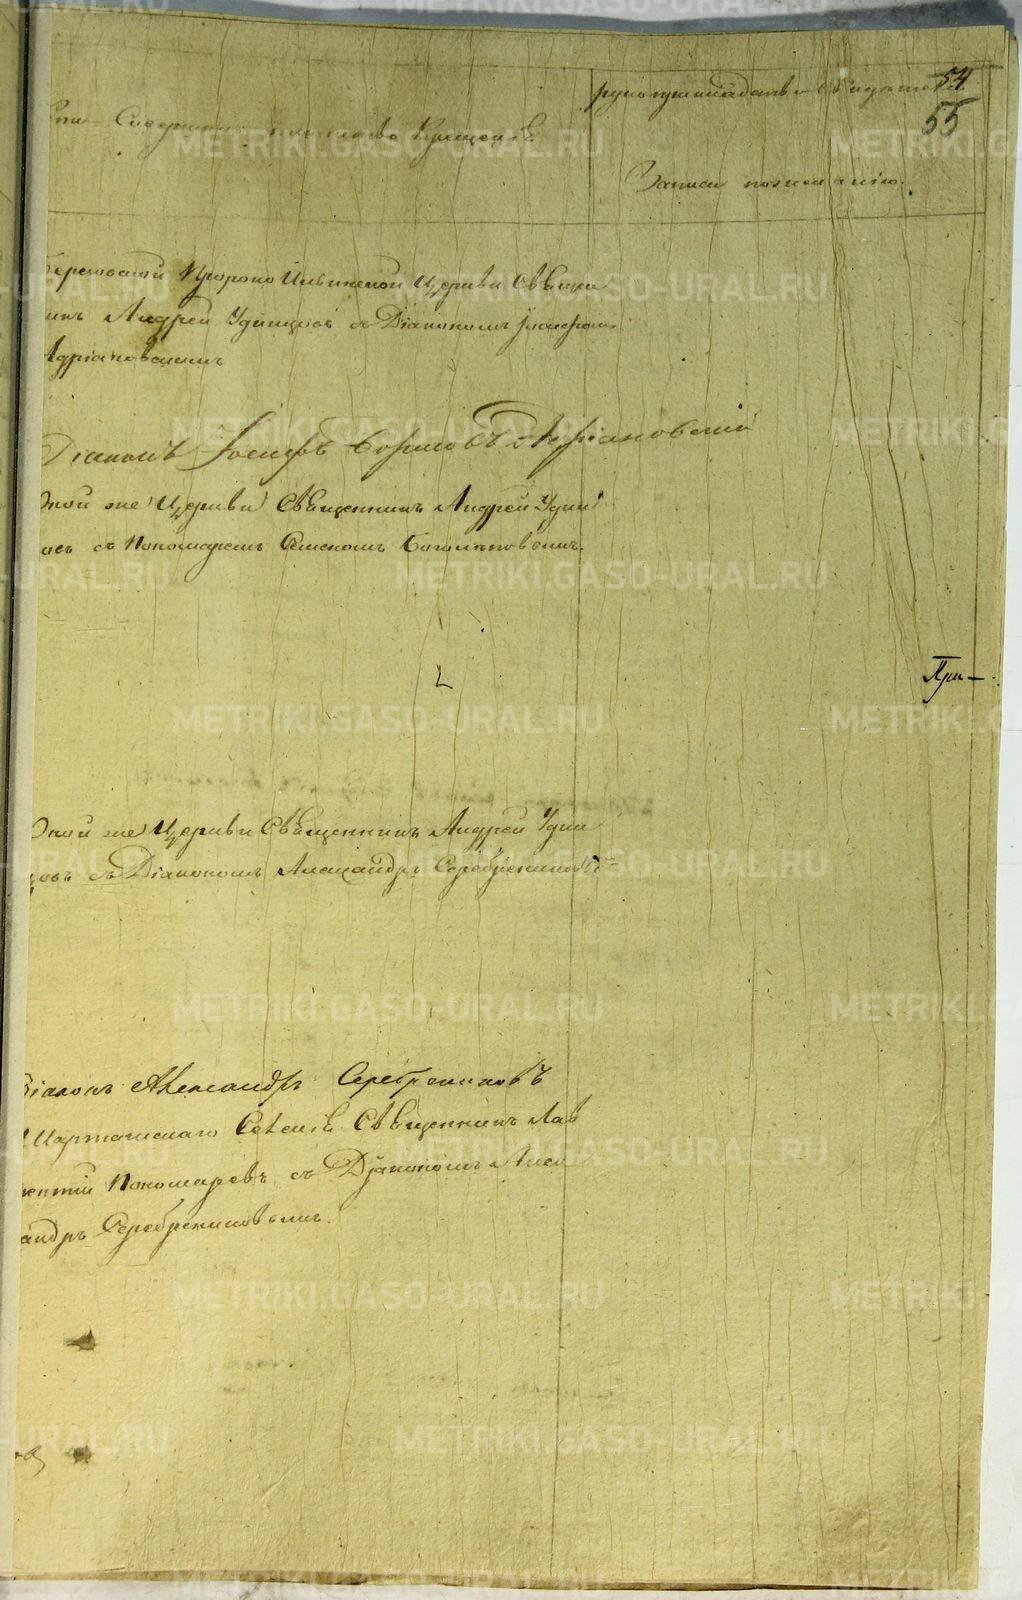 54
55
Кто Совершалъ таинство Крещенія
рукоприкладство свидѣтелей
Записи по желанію.
Березовской Пророко Ильинской Церкви Свѣщен
никъ Андрей Удинцовъ съ Діакономъ Іосифомъ
Адріановскимъ
Діаконъ Іосифъ Адріановскій
Оной же Церкви Священникъ Андрей Удин
цовъ съ Пономаремъ
При-
Оной же Церкви Священникъ Андрей Удин
цовъ съ Діакономъ Александръ Серебрениковъ
Діаконъ Александръ Серебрениковъ
Шарташскаго Селенія Священникъ Лав
рентій Пономаревъ съ Діакономъ Алек
андръ Серебрениковымъ.